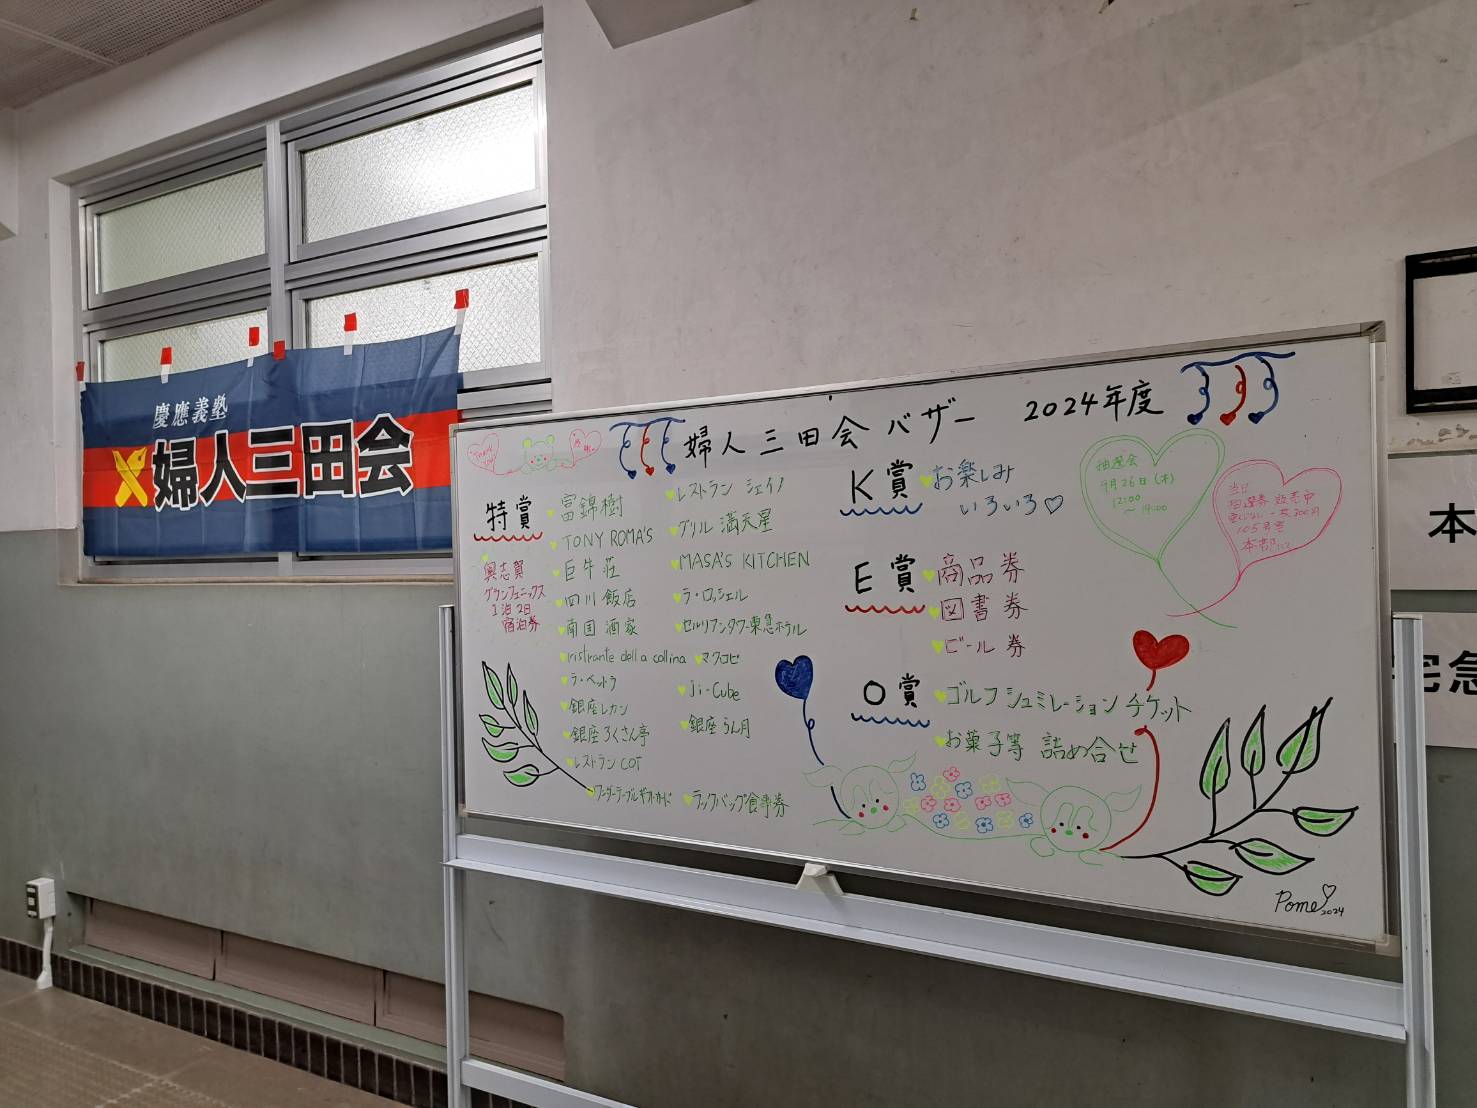 慶應義塾
婦人三田会
婦人三田会バザー 2024年度
特賞
奥志賀
グランフェニックス
1泊2日
宿泊券
富錦樹
TONY ROMA'S
巨牛荘
四川飯店
南国酒家
ristrante della collina
ラ・ベットラ
銀座レカン
銀座ろくさん亭
レストランCOT
ワンダーテーブルギフトカード
レストラン シェイノ
グリル満天星
MASA'S KITCHEN
ラ・ロッシェル
セルリアンタワー東急ホテル
マクロビ
Ji-Cube
銀座うん月
ラックバッグ食事券
K賞
お楽しみ
いろいろ♡
E賞
商品券
図書券
ビール券
O賞
ゴルフシュミレーションチケット
お菓子等 詰め合せ
抽選会
9月26日(木)
12:00
～14:00
当日
抽選券販売中
空くじなし一枚300円
105号室
本部にて
Pome♡
2024
本
宅急